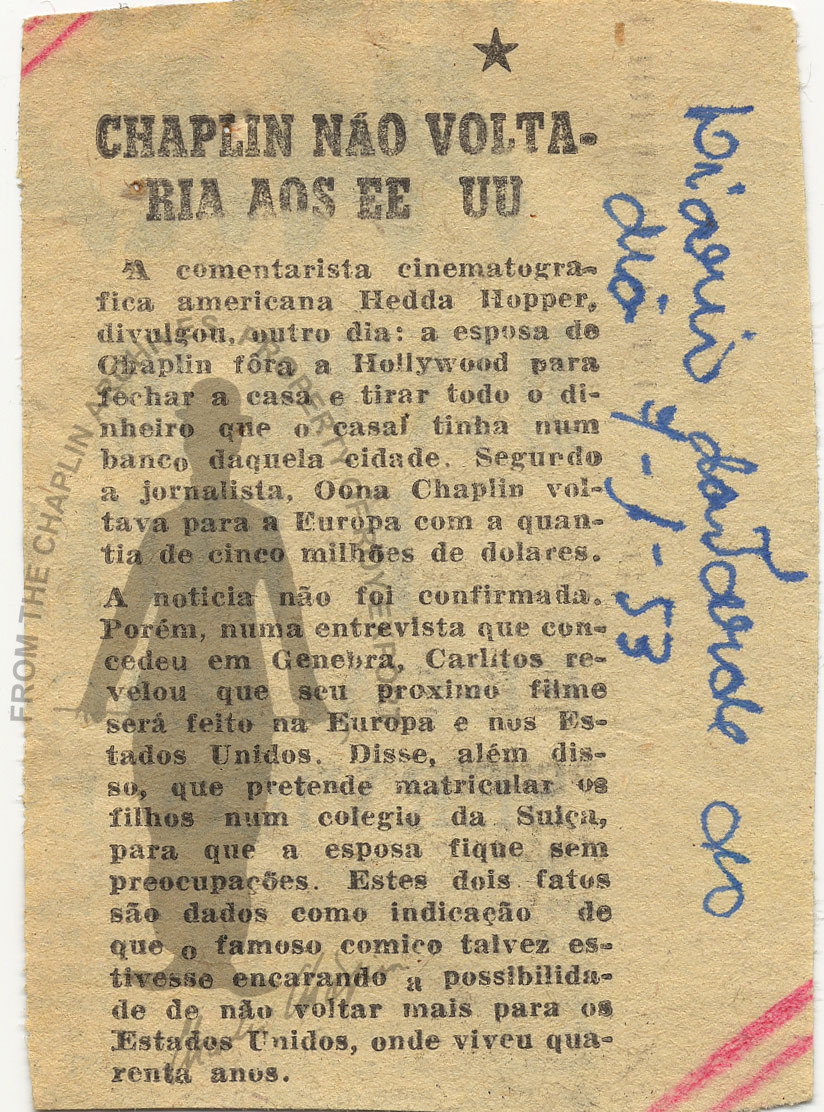 CHAPLIN NÃO VOLTA-
RIA AOS EE UU
A comentarista cinematogra-
fica americana Hedda Hopper,
divulgou, outro dia: a esposa de
Chaplin fôra a Hollywood para
fechar a casa e tirar todo o di-
nheiro que o casal tinha num
banco daquela cidade. Segurdo
a jornalista, Oona Chaplin vol-
tava para a Europa com a quan-
tia de cinco milhões de dolares.
A noticia não foi confirmada.
Porém, numa entrevista que con-
cedeu em Genebra, Carlitos re-
velou que seu proximo filme
será feito na Europa e nos Es-
tados Unidos. Disse, além dis-
so, que pretende matricular os
filhos num colegio da Suiça,
para que a esposa fique sem
preocupações. Estes dois fatos
são dados como indicação de
que o famoso comico talvez es-
tivesse encarando a possibilida-
de de não voltar mais para os
Estados Unidos, onde viveu qua-
renta anos.
Diario da Tarde do
dia 9-1-53
FROM THE CHAPLIN ARCHIVES PROPERTY OF ROY EXPORT
Charles Chaplin